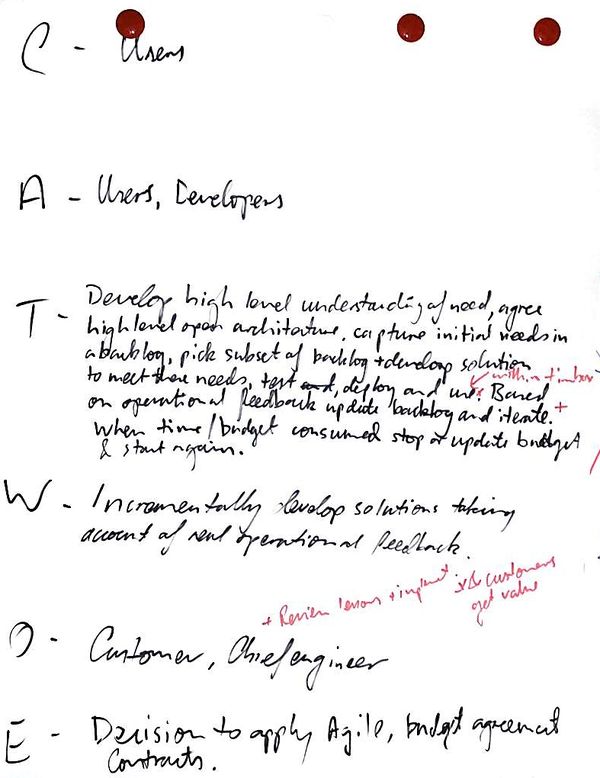 C - Users
A - Users, Developers
T - Develop high level understanding of need, agree
high level open architecture, capture initial needs in
a backlog, pick subset of backlog + develop solution
to meet these needs, test and, deploy and use. Based
within timebox
on operational feedback update backlog and iterate. +
When time/budget consumed stop or update budget
& start again.
W - Incrementally develop solutions taking
account of real operational feedback.
+ Review lessons + implement
& customers
get value
O - Customer, Chief engineer
E - Decision to apply Agile, budget agreement
Contracts.